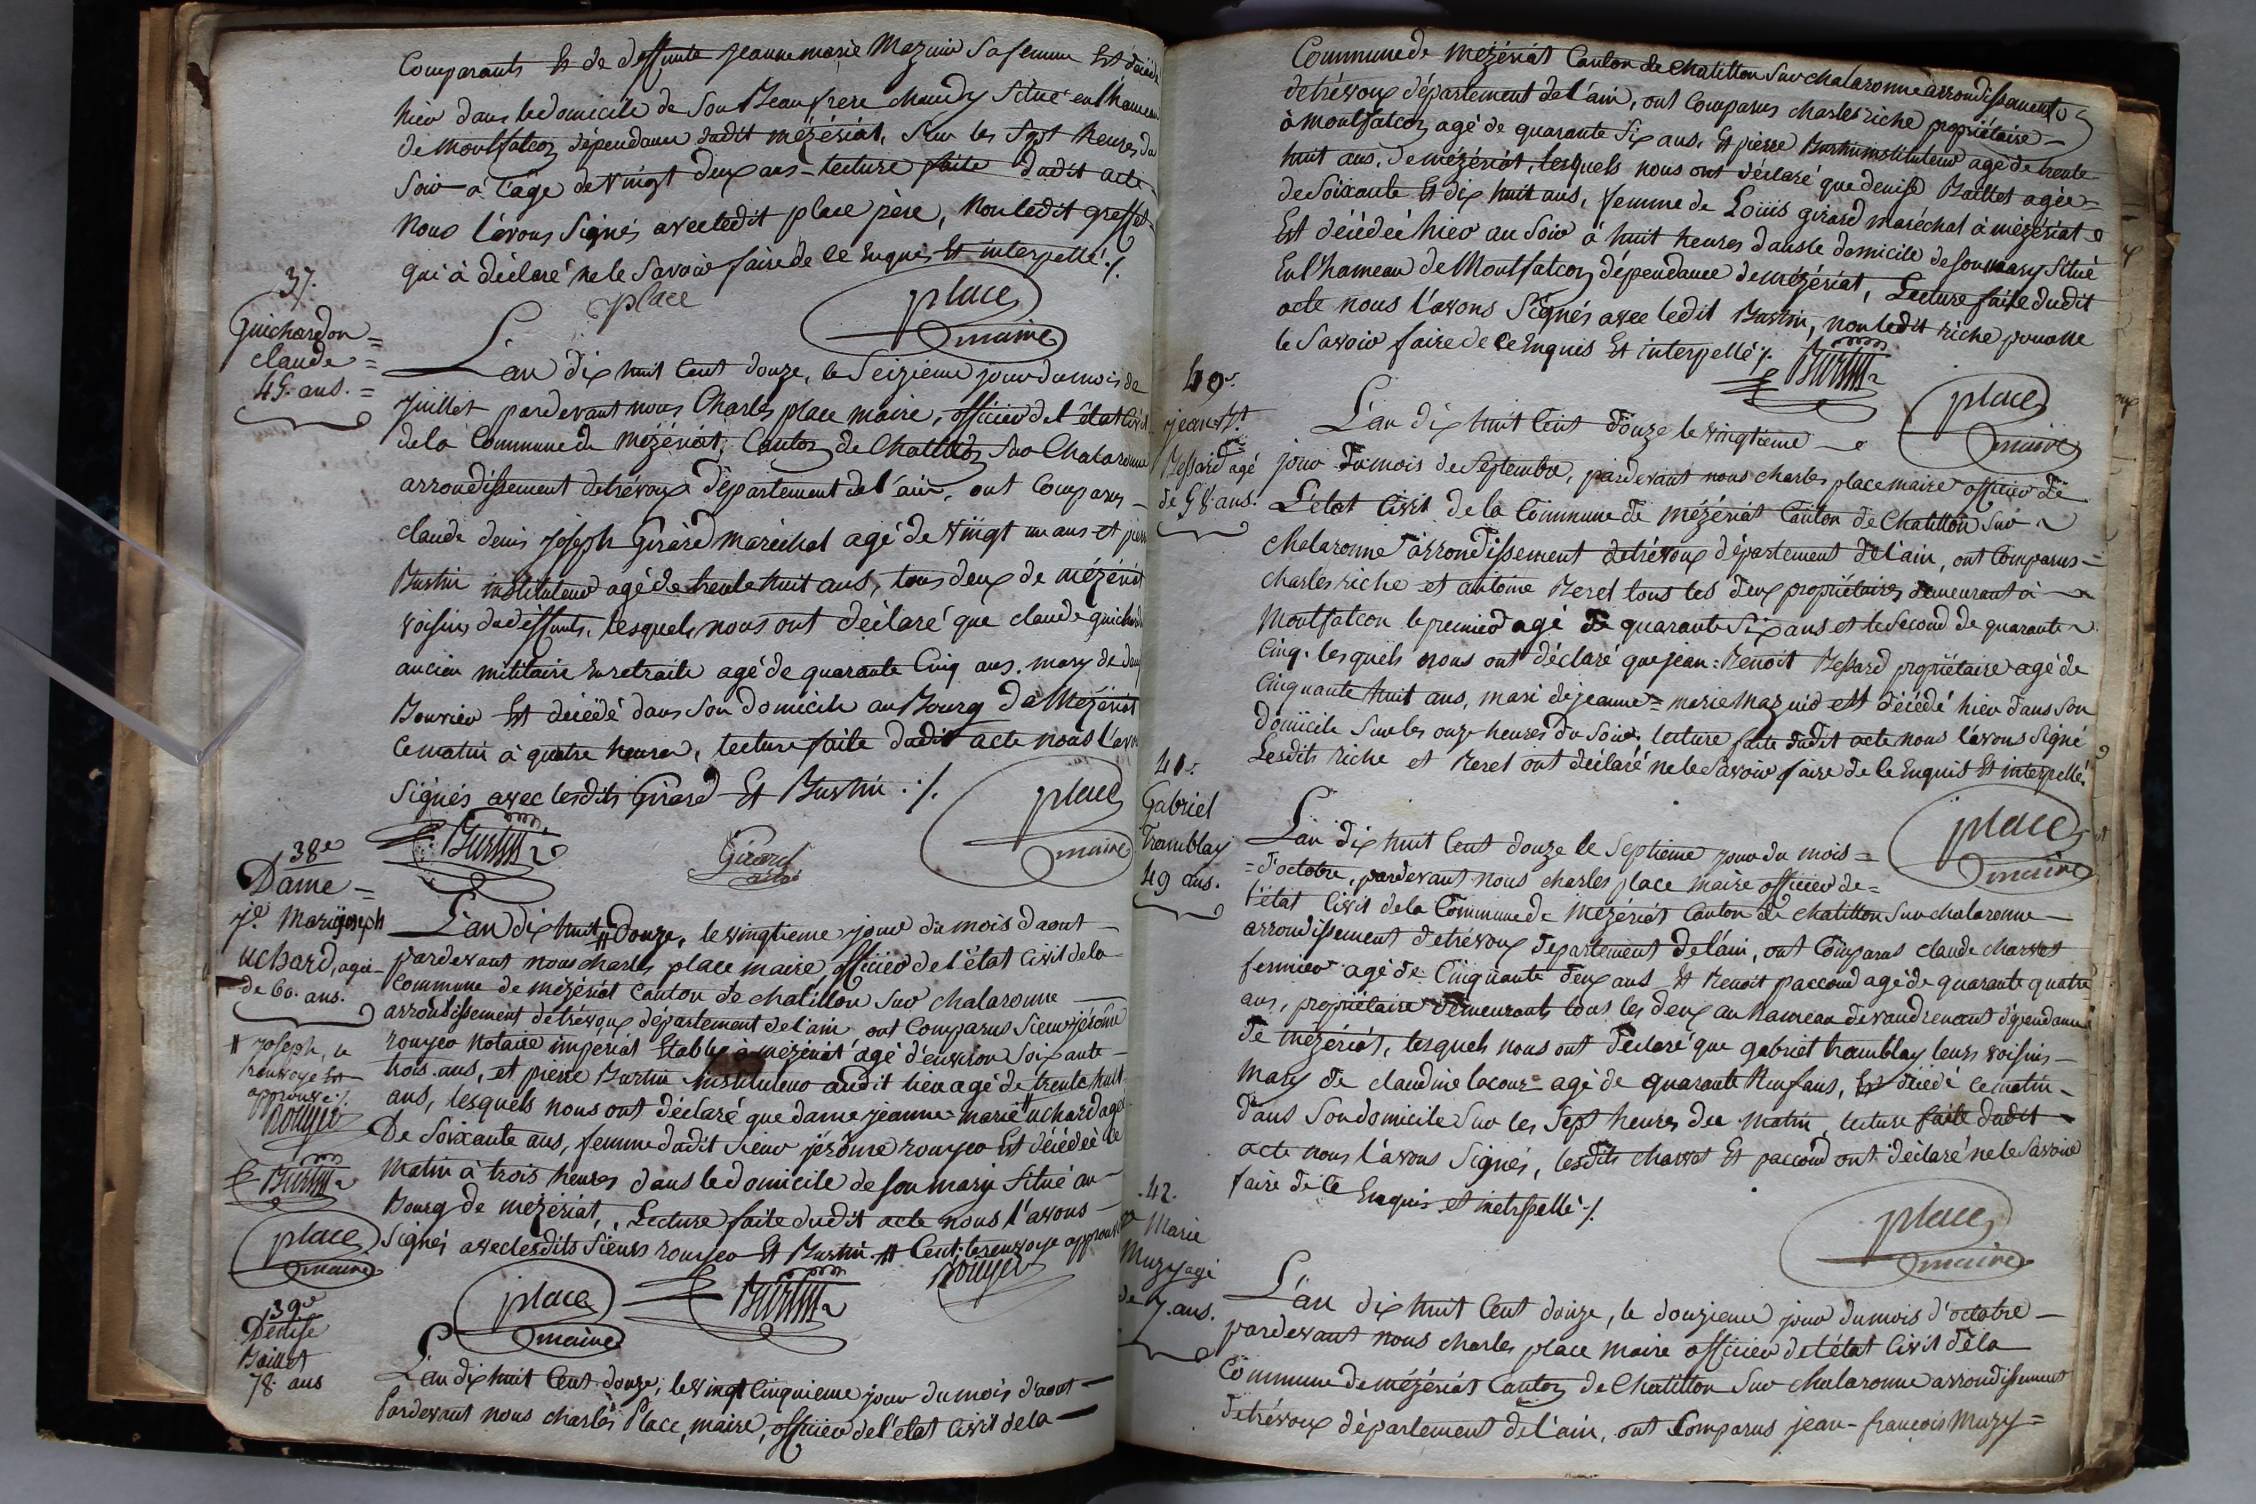 Comparants Et de deffunte jeanne marie Mazuir sa femme Est décédé
hier dans le domicile de son Beau frere chaudy situé en l'hameau
de Montfalcon dépendance dudit mézériat, sur les sept heures du
soir à l'âge de vingt deux ans lecture faite dudit acte
nous l'avons signés avec ledit place père, non ledit greffet
qui à déclaré ne le savoir faire de ce enquis Et interpellé ./.
place
place
maire
37.
Guichardon =
claude =
45. ans. =
L'an dix huit cent douze, le seizieme jour du mois de
juillet pardevant nous Charles place maire, officier de l'état Civil
de la Commune de mézériat, Canton de Chatillon sur Chalaronne
arrondissement de trévoux département de l'ain, ont comparus
claude denis joseph Girard maréchal agé de vingt un ans et pierre
Burtin instituteur agé de trente huit ans, tous deux de mézériat
voisins du deffunts, lesquels nous ont déclaré que claude guichardon
ancien militaire en retraite agé de quarante Cinq ans. mary de
Bouvier Est décédé dans son domicile au Bourg de Mézériat
ce matin à quatre heures, lecture faite dudit acte nous l'avons
signés avec lesdits Girard Et Burtin ./.
place
maire
Burtin
Girard
38e
Dame =
je. Marie joseph
uchard, agée
de 60. ans.
L'an dix huit # Douze, le vingtieme jour du mois d'aout
pardevant nous charles place maire officier de l'état Civil de la
commune de mézériat canton de chatillon sur chalaronne
arrondissement de trévoux département de l'ain ont comparus sieur jérôme
rouyer notaire impérial Etably à mézériat agé d'environ soixante
trois ans, et pierre Burtin instituteur audit lieu agé de trente huit
ans, lesquels nous ont déclaré que dame jeanne marie # uchard agée
De soixante ans, femme dudit sieur jérôme rouyer Est décédée ce
matin à trois heures dans le domicile de son mary situé au
Bourg de mézériat, Lecture faite dudit acte nous l'avons
signés avec lesdits sieurs rouyer Et Burtin # Cent. le renvoye approuvé
# joseph, le
renvoye Est
approuvé ./.
Rouyer
Burtin
place
maire
place
maire
Burtin
Rouyer
39e
Denise
Baillet
78 ans
L'an dix huit Cent douze, le vingt Cinquieme jour du mois d'aout
Pardevant nous charles Place, maire, officier de l'état Civil de la
Commune de mézériat Canton de Chatillon sur chalaronne arrondissement
de trévoux département de l'ain, ont comparus charles riche propriétaire
à Montfalcon agé de quarante six ans, Et pierre Burtin instituteur agé de trente
huit ans, de mézériat, lesquels nous ont déclaré que denise Baillet agée
de soixante Et dix huit ans, femme de Louis girard maréchal à mézériat
Est décédée hier au soir à huit heures dans le domicile de son mary situé
En l'hameau de Montfalcon dépendance de mézériat, Lecture faite dudit
acte nous l'avons signés avec ledit Burtin, non ledit riche pour ne
le savoir faire de ce enquis Et interpellé ./.
Burtin
place
maire
40e.
jean Bt.
Bessard agé
de 58 ans.
L'an dix huit Cent douze le vingtieme
jour du mois de septembre, pardevant nous charles place maire officier de
L'état Civil de la Commune de mézériat Canton de Chatillon sur
chalaronne arrondissement de trévoux département de l'ain, ont comparus
charles riche et antoine Beret tous les deux propriétaires demeurant à
Montfalcon le premier agé de quarante six ans et le second de quarante
cinq. lesquels nous ont déclaré que jean = Benoit Bessard propriétaire agé de
cinquante huit ans, mari de jeanne = marie Mazuir est décédé hier dans son
domicile sur les onze heures du soir, lecture faite dudit acte nous l'avons signé
Lesdits riche et Beret ont déclaré ne le savoir faire de ce Enquis Et interpellé.
place
maire
41e.
Gabriel
Tramblay
49 ans.
L'an dix huit Cent douze le septieme jour du mois =
= d'octobre, pardevant nous charles place maire officier de =
l'état Civil de la Commune de Mézériat Canton de chatillon sur chalaronne
arrondissement de trévoux département de l'ain, ont Comparus claude charvet
fermier agé de Cinquante deux ans Et Benoit paccoud agé de quarante quatre
ans, propriétaire demeurants tous les deux au hameau de vaudrenant dépendance
de mézériat, lesquels nous ont déclaré que gabriel tramblay leurs voisins
Mary de claudine lacour agé de quarante Neuf ans, Est décédé ce matin
dans son domicile sur les sept heures du matin, lecture faite dudit
acte nous l'avons signés, lesdits charvet Et paccoud ont déclaré ne le savoir
faire de ce Enquis et interpellé ./.
place
maire
.42.
Marie
Muzy agé
de 7. ans.
L'an dix huit Cent douze, le douzieme jour du mois d'octobre
pardevant nous charles place maire officier de l'état Civil de la
Commune de mézériat Canton de Chatillon sur chalaronne arrondissement
de trévoux département de l'ain, ont Comparus jean-françois Muzy =